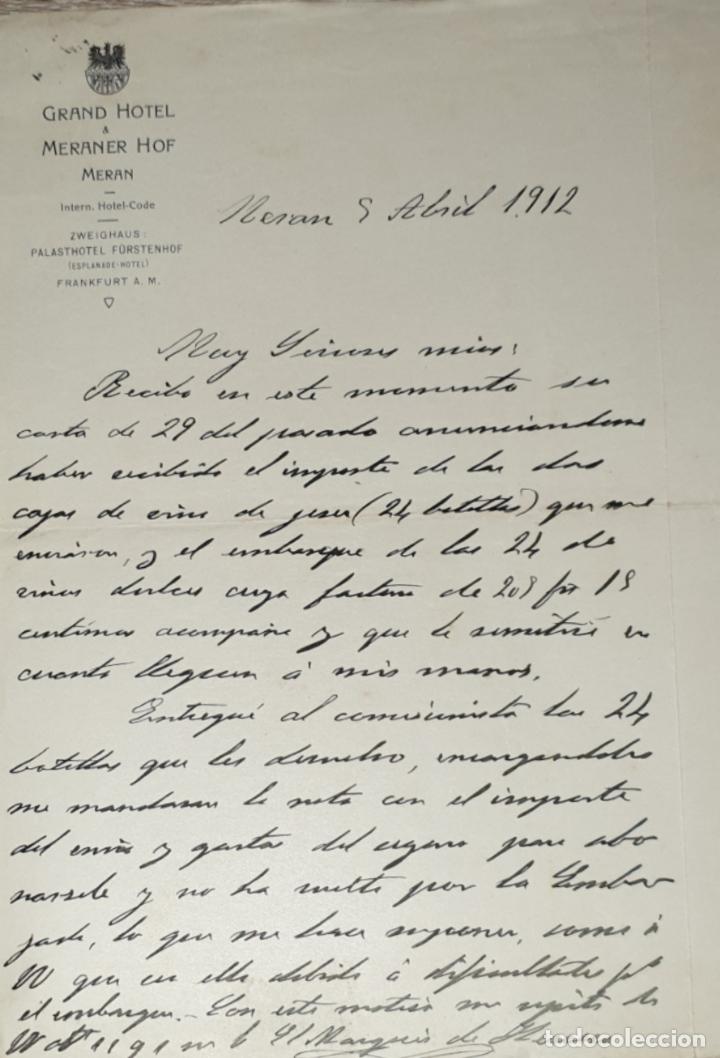 GRAND HOTEL
&
MERANER HOF
MERAN
Intern. Hotel-Code
ZWEIGHAUS:
PALASTHOTEL FÜRSTENHOF
(ESPLANADE-HOTEL)
FRANKFURT A. M.
Meran 5 Abril 1912
Muy Señores mios:
Recibo en este momento su
carta de 29 del pasado anunciandome
haber recibido el importe de las dos
cajas de vino de jerez (24 botellas) que me
enviaron, y el embarque de las 24 de
vinos dulces cuya factura de 205 pts 15
centimos acompaña y que le remitiré en
cuanto lleguen á mis manos.
Entregué al comisionista las 24
botellas que les devuelvo, encargandole
me mandaran la nota con el importe
del envio y gastos del seguro para abo
narsele y no ha vuelto por la Embaj
jada, lo que me hace suponer, como á
VV que es ello debido á dificultades pª
el embarque. Con este motivo me repito de
El Marques de
todocoleccion